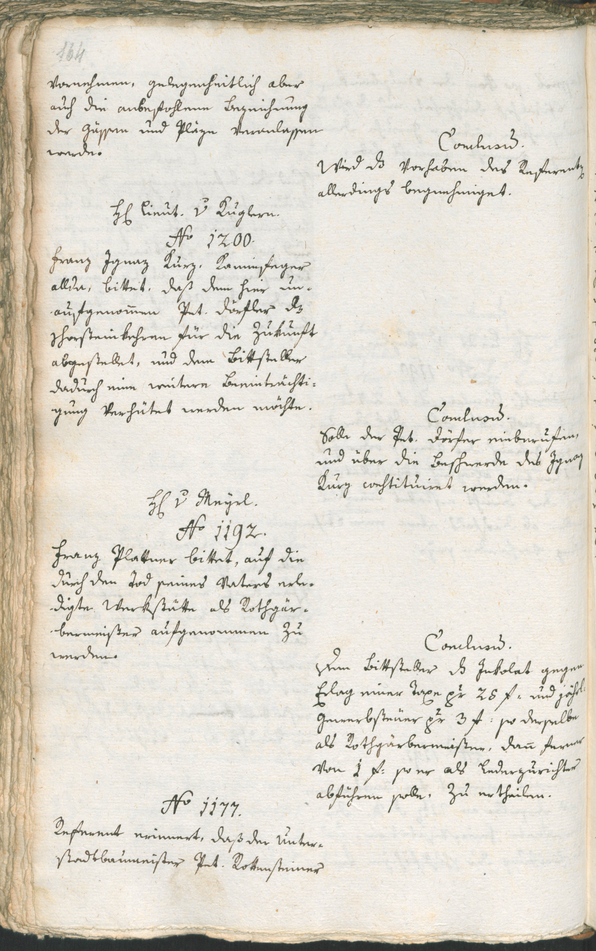 164
vornehmen, gelegenheitlich aber
auch die anbefohlene Bezeichnung
der Gässen und Pläze veranlassen
werde.
Conclusum.
Wird ds Vorhaben des Referenten
allerdings begnehmiget.
H. Lieut. v Kuglern.
No 1200.
Franz Ignaz Kurz, Kaminfeger
allda, bittet, daß dem hier un-
aufgenommen Pet. Dörfler ds
Schorsteinkehren für die Zukunft
abgestellet, und dem Bittsteller
dadurch eine weitere Beeinträchti-
gung verhütet werden möchte.
Conclusum.
Solle der Pet. Dörfer einberufen,
und über die Beschwerde des Ignaz
Kurz constituiret werden.
H. v Mayrl.
No 1192.
Franz Plattner bittet, auf die
durch den Tod seines Vaters erle-
digte Werkstätte als Rothgär-
bermeister aufgenommen zu
werden.
Conclusum.
Dem Bittsteller ds Inkolat gegen
Erlag einer Taxe pr 25 f. und jährl.
Gewerbsteuer pr 3 f. so derselbe
als Rothgärbermeister, dann ferner
von 1 f. so er als Lederzurichter
abführen solle, zu ertheilen.
No 1177.
Referent erinnert, daß der Unter-
stadtbaumeister Pet. Rottensteiner